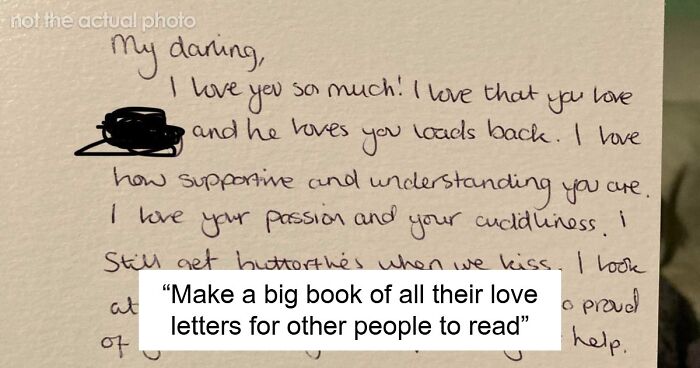 not the actual photo
My darling,
I love you so much! I love that you love
and he loves you loads back. I love
how supportive and understanding you are.
I love your passion and your cuddliness. I
Still get butterflies when we kiss. I look
at proud
of help.
“Make a big book of all their love
letters for other people to read”